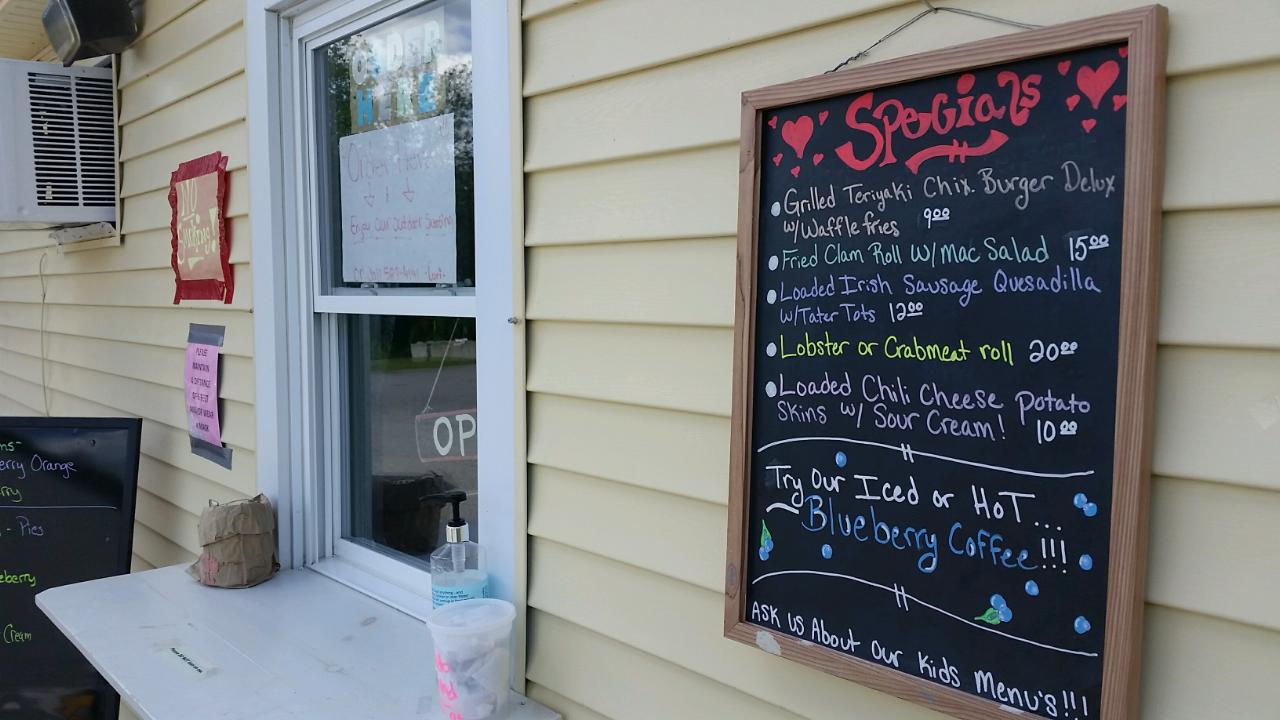 ORDER
HERE
Order Here
Enjoy our outdoor Seating
NO
Smoking!
PLEASE
MAINTAIN
A DISTANCE
OF 6 FEET
AND/OR WEAR
A MASK
OP
erry Orange
rry
- Pies
eberry
Cream
Specials
Grilled Teriyaki Chix. Burger Delux
w/Waffle fries 9.00
Fried Clam Roll W/Mac Salad 15.00
Loaded Irish Sausage Quesadilla
w/Tater Tots 12.00
Lobster or Crabmeat roll 20.00
Loaded Chili Cheese Potato
Skins w/ Sour Cream! 10.00
Try Our Iced or HoT...
Blueberry Coffee!!!
ASK us About Our Kids Menu's!!!